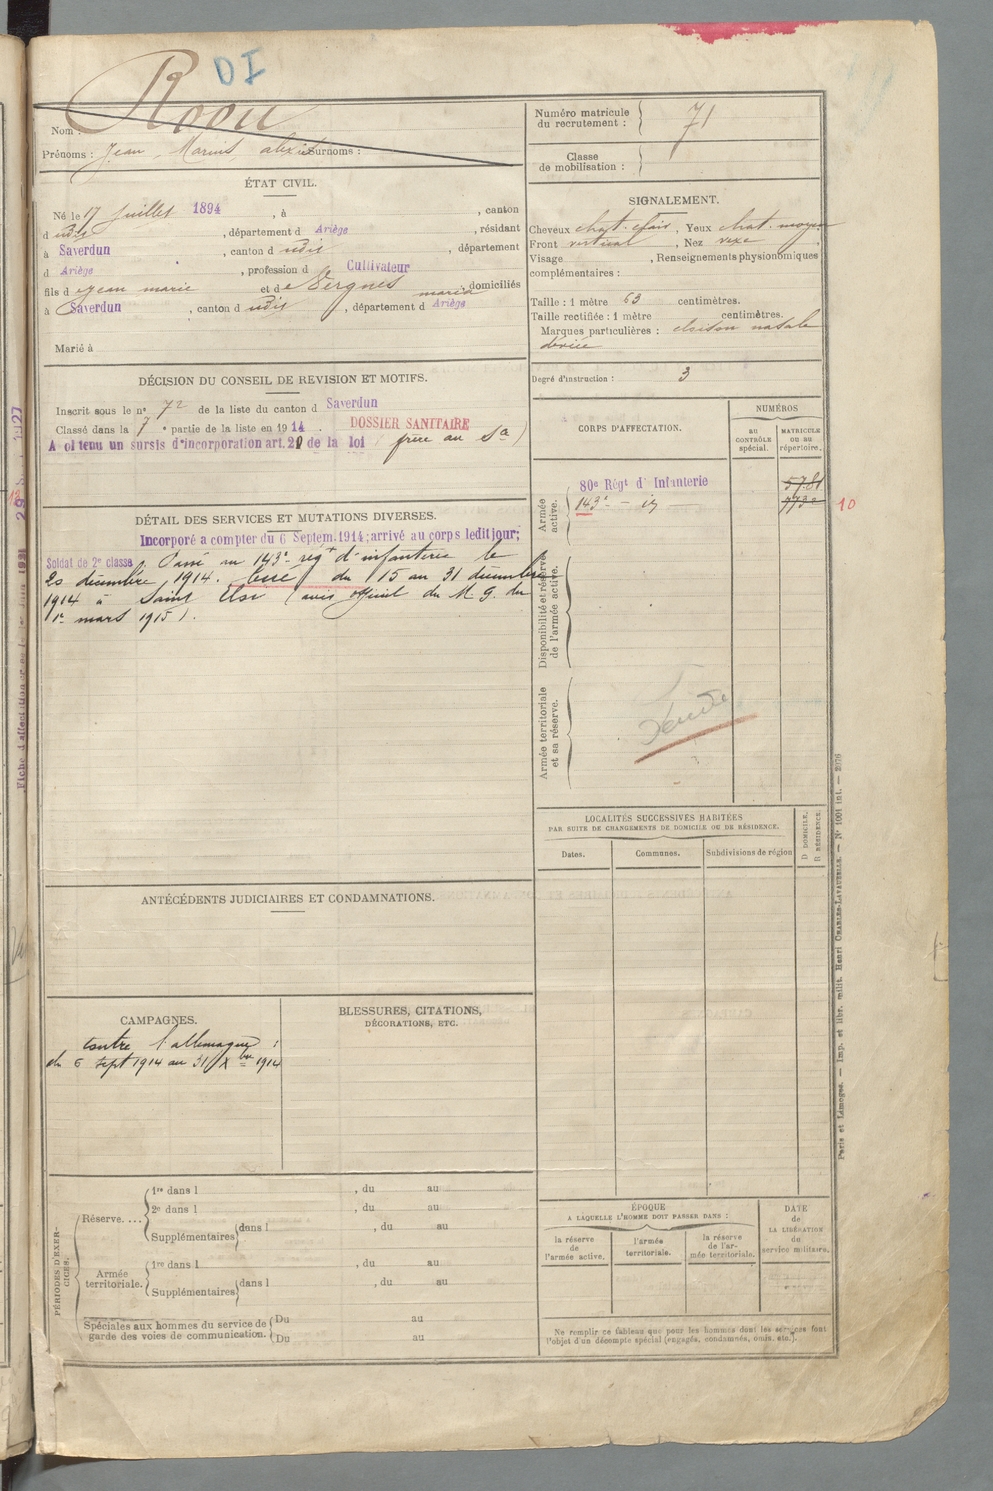 DI
Nom :
Prénoms : Jean Marius alexis Surnoms :
Numéro matricule
du recrutement : 71
Classe
de mobilisation :
ÉTAT CIVIL.
Né le 17 Juillet 1894, à , canton
d udit, département d Ariège, résidant
à Saverdun, canton d udit, département
d Ariège, profession d Cultivateur
fils d e Jean marie et d e Vergnes maria, domiciliés
à Saverdun, canton d udit, département d Ariège
Marié à
SIGNALEMENT.
Cheveux chat. clair, Yeux chat. moyen
Front vertical, Nez vexe,
Visage , Renseignements physionomiques
complémentaires :
Taille : 1 mètre 63 centimètres.
Taille rectifiée : 1 mètre centimètres.
Marques particulières : cloison nasale
déviée
Degré d'instruction : 3
DÉCISION DU CONSEIL DE REVISION ET MOTIFS.
Inscrit sous le n° 72 de la liste du canton d Saverdun
Classé dans la 7e partie de la liste en 1914. DOSSIER SANITAIRE
A obtenu un sursis d'incorporation art. 21 de la loi (frère au Sce)
CORPS D'AFFECTATION.
NUMÉROS
au
CONTRÔLE
spécial.
MATRICULE
ou au
répertoire.
Armée
active.
80e Régt d'Infanterie 5781
143e - id - 773
10
Disponibilité et réserve
de l'armée active.
Armée territoriale
et sa réserve.
DÉTAIL DES SERVICES ET MUTATIONS DIVERSES.
Incorporé a compter du 6 Septem. 1914; arrivé au corps ledit jour;
Soldat de 2e classe. Passé au 143e regt d'infanterie le
20 décembre 1914. Tué du 15 au 31 décembre
1914 à Saint Eloi (avis officiel du M. G. du
1er mars 1915).
LOCALITÉS SUCCESSIVES HABITÉES
PAR SUITE DE CHANGEMENTS DE DOMICILE OU DE RÉSIDENCE.
Dates.
Communes.
Subdivisions de région
D DOMICILE.
R RÉSIDENCE.
ANTÉCÉDENTS JUDICIAIRES ET CONDAMNATIONS.
CAMPAGNES.
contre l'allemagne :
du 6 sept 1914 au 31 Xbre 1914
BLESSURES, CITATIONS,
DÉCORATIONS, ETC.
PÉRIODES D'EXER-
CICES.
Réserve....
1re dans l , du au
2e dans l , du au
Supplémentaires dans l , du au
Armée
territoriale.
1re dans l , du au
Supplémentaires dans l , du au
Spéciales aux hommes du service de
garde des voies de communication.
Du au
Du au
ÉPOQUE
A LAQUELLE L'HOMME DOIT PASSER DANS :
la réserve
de
l'armée active.
l'armée
territoriale.
la réserve
de l'ar-
mée territoriale.
DATE
de
LA LIBÉRATION
du
service militaire.
Ne remplir ce tableau que pour les hommes dont les services font
l'objet d'un décompte spécial (engagés, condamnés, omis, etc.).
Paris et Limoges. — Imp. et libr. milit. Henri CHARLES-LAVAUZELLE. — N° 1001 int. — 2976